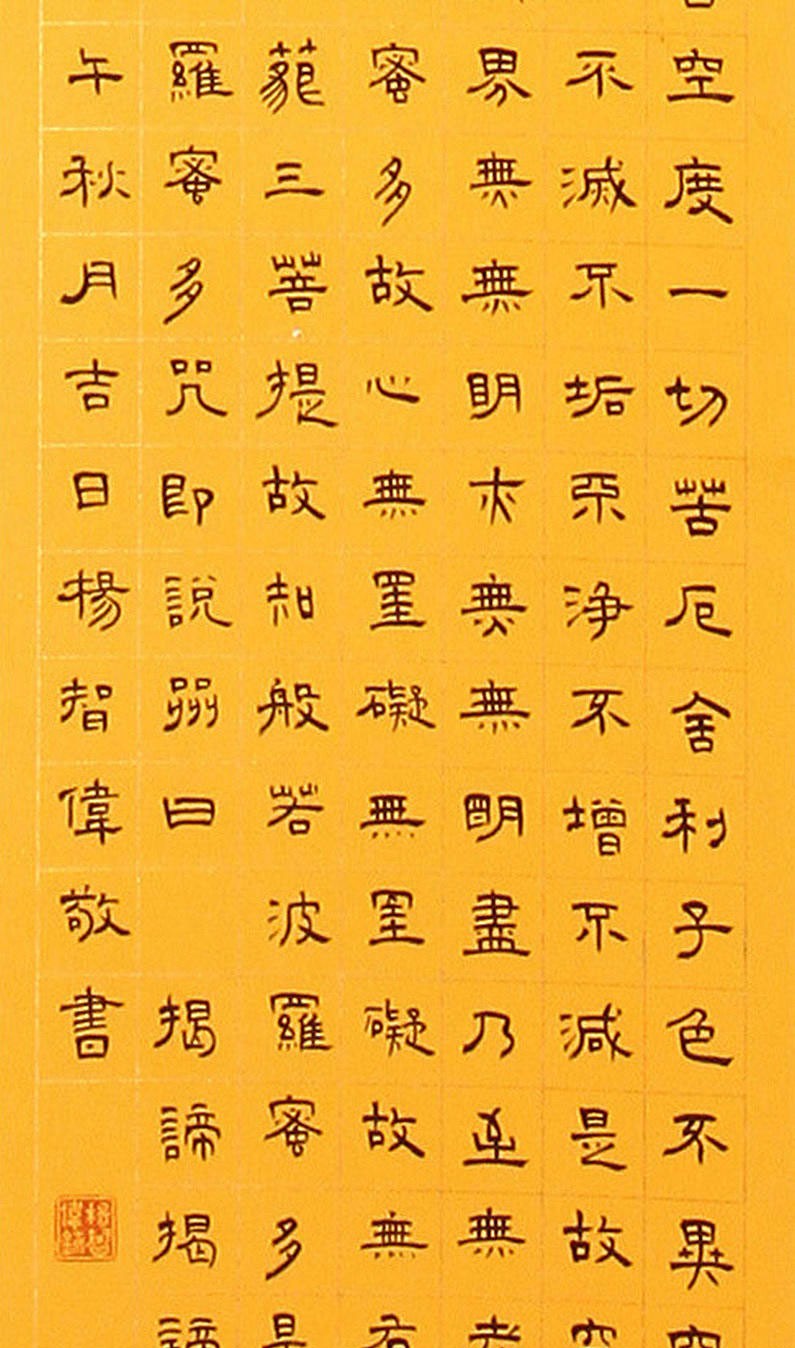 空度一切苦厄舍利子色不異空
不滅不垢不淨不增不減是故空
界無無明亦無無明盡乃至無老
蜜多故心無罣礙無罣礙故無有
藐三菩提故知般若波羅蜜多是
羅蜜多咒即說咒曰 揭諦揭諦
午秋月吉日楊智偉敬書